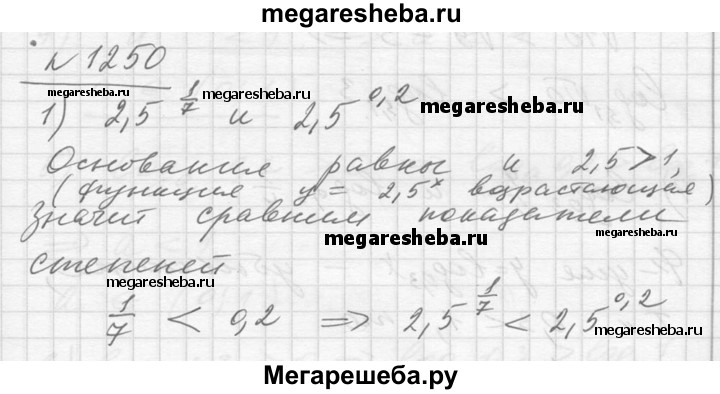 megaresheba.ru
№ 1250
megaresheba.ru
1) 2,5^(1/7) и 2,5^0,2
megaresheba.ru
megaresheba.ru
Основания равны и 2,5>1,
(функция y = 2,5^x возрастающая)
значит сравним показатели
megaresheba.ru
степеней
megaresheba.ru
1/7 < 0,2 => 2,5^(1/7) < 2,5^0,2
megaresheba.ru
Мегарешеба.ру